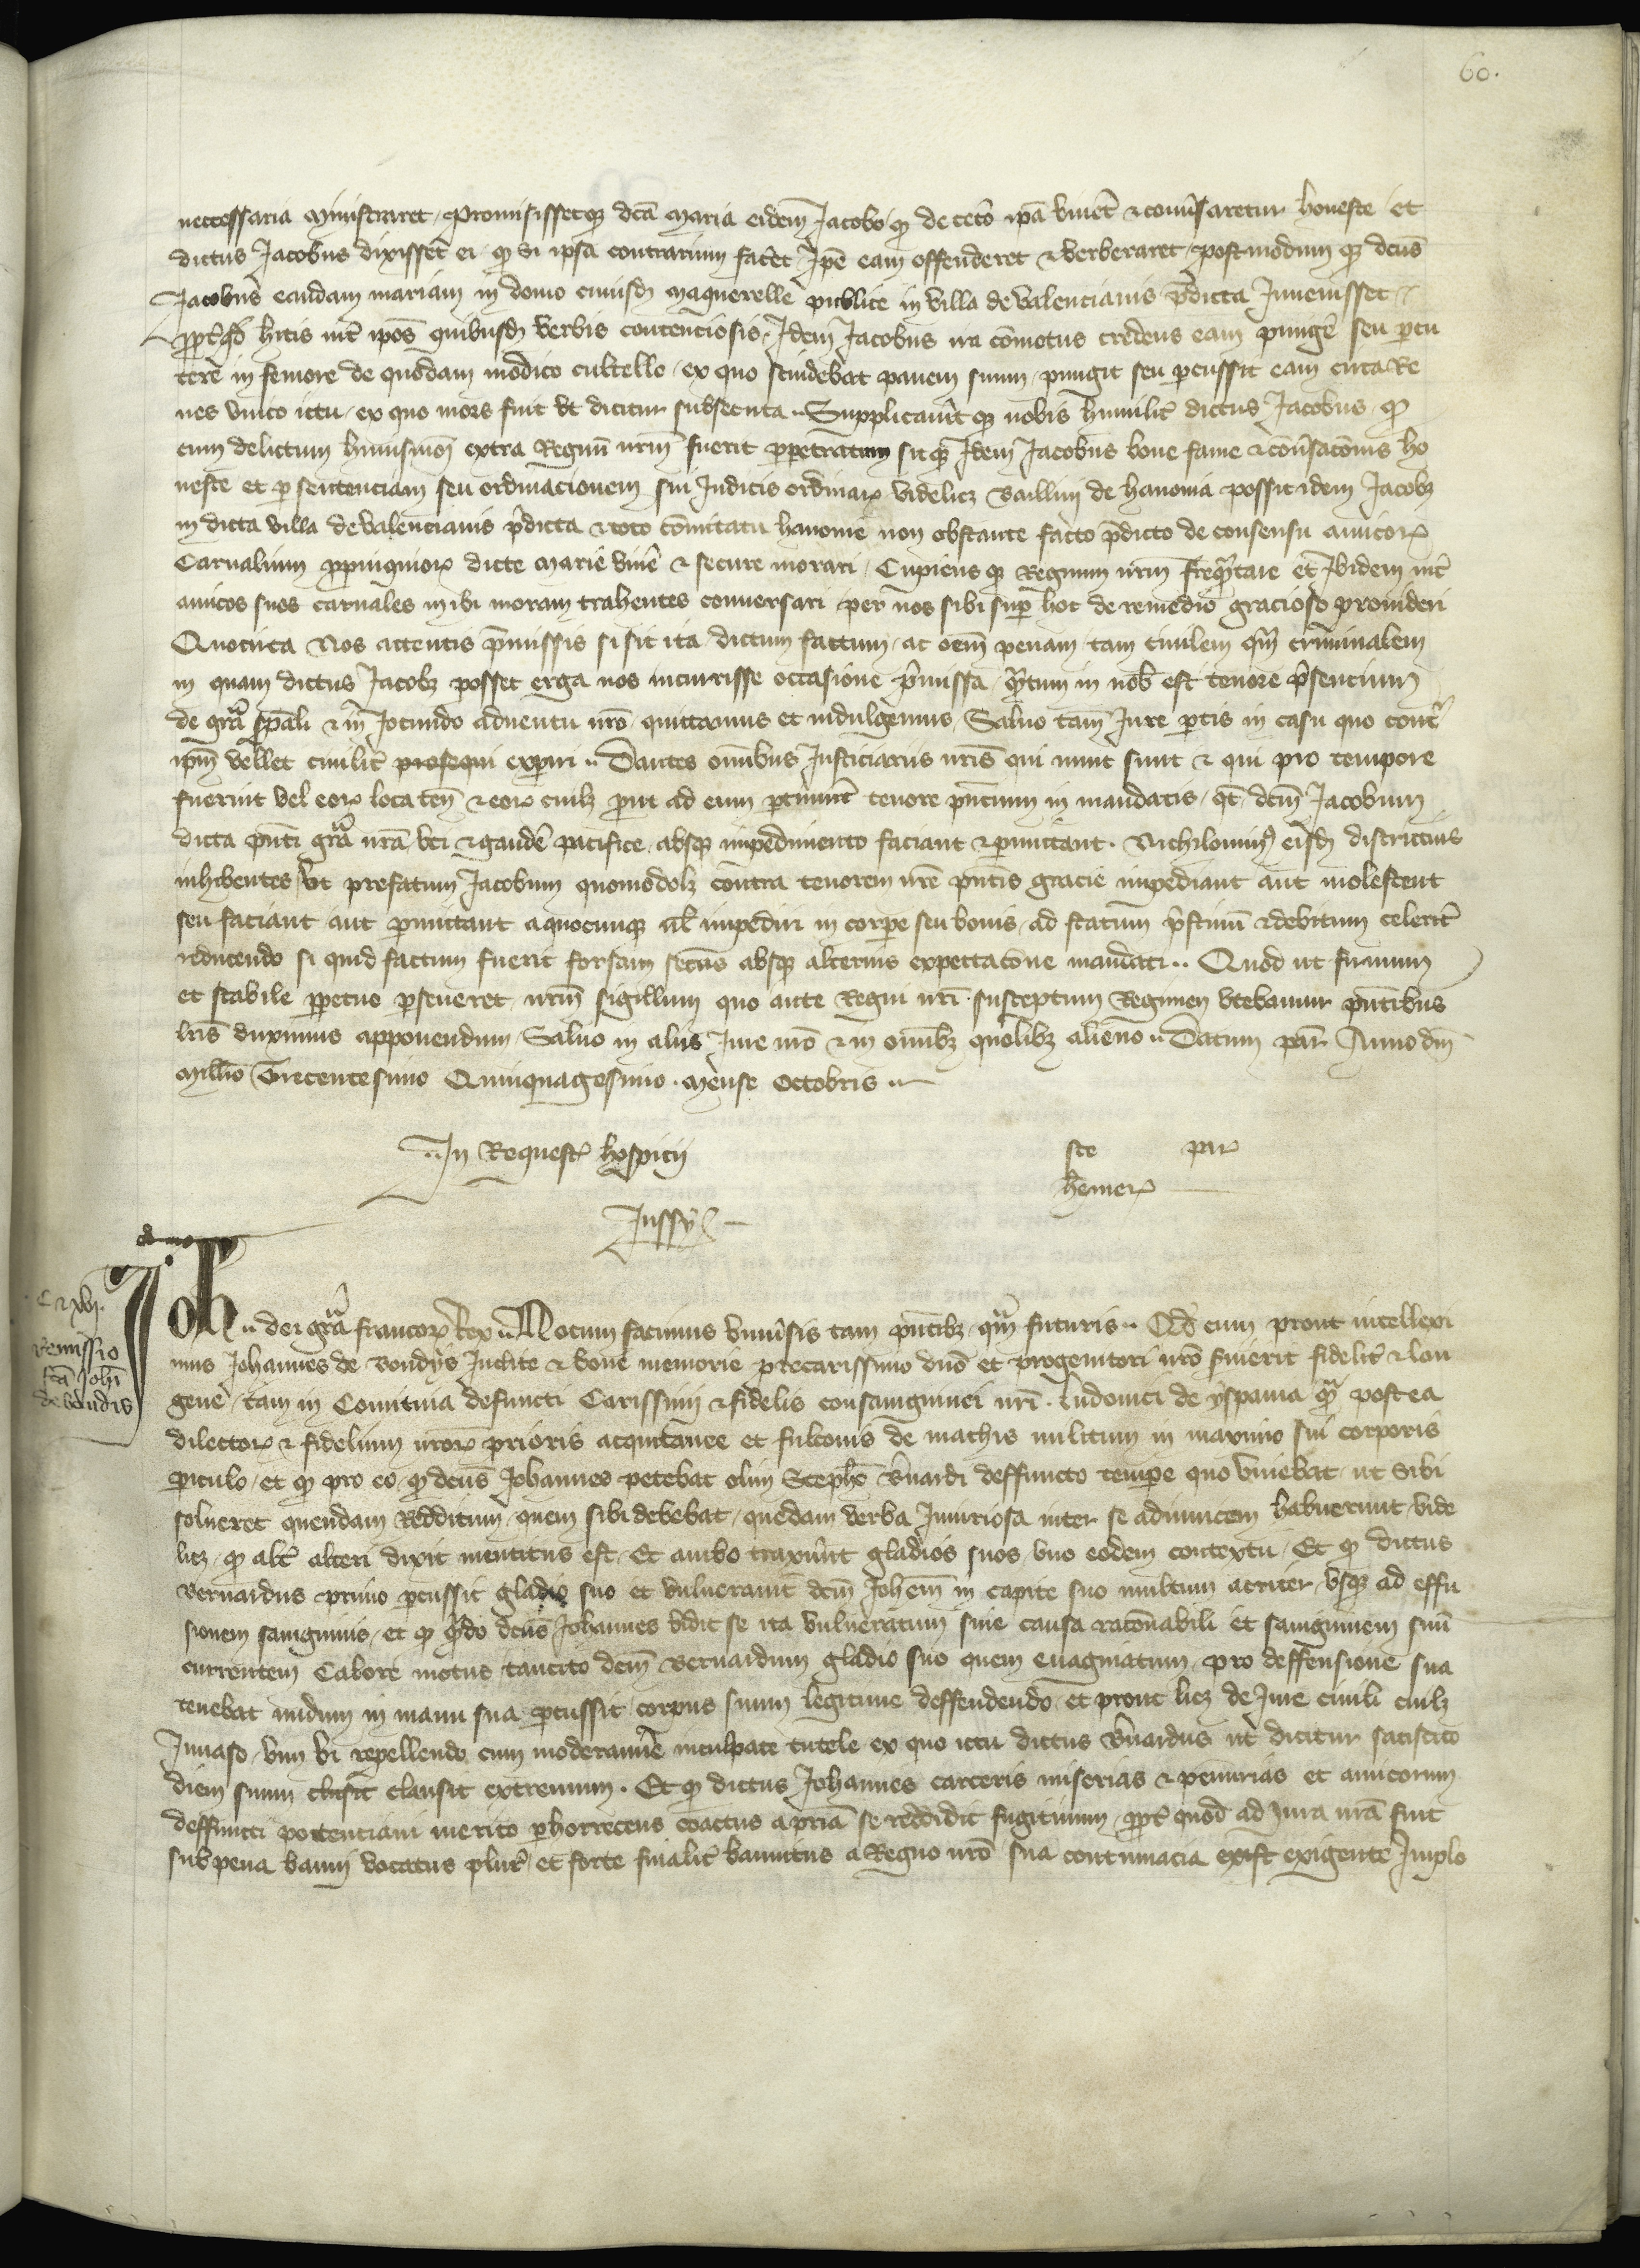 60.
neccessaria ministraret, promisissetque dcā Maria eidem Jacobo qͦ de ceto ipā vivet & convsaretur honeste et
dictus Jacobus dixisset ei qͦ si ipsa contrarium facet Ipe eam offenderet & verberaret, postmodum qꝫ dcus
Jacobus eandam mariam in domo cuiusdā maquerelle publice in villa de valencianis pdicta Invenisset
ppt qd hitis int ipos quibusdā verbis contenciosis, Idem Jacobus ira comotus credens eam pungere seu pcu
tere in femore de quodam modico cultello ex quo scindebat panem suum, pungit seu pcussit eam circa Re
nes unico ictu, ex quo mors fuit ut dicitur subsecuta. Supplicavit qꝫ nobis humilit dictus Jacobus, qͦ
cum delictum huiusmoi extra Regnū nrm fuerit ppetratum sit qꝫ Idem Jacobus bone fame & convsaconis ho
neste et p sentenciam seu ordinacionem sui Judicis ordinarꝫ videlicꝫ Baillivi de hanonia possit idem Jacobꝫ
in dicta villa de valencianis pdicta & toto comitatu hanonie non obstante facto pdicto de consensu amicorꝫ
Carnalium ppinquiorꝫ dicte marie vive & secure morari, Cupiens qꝫ Regnum nrm frequtare et Ibidem int
amicos suos carnales inibi moram trahentes conversari per nos sibi sup hoc de remedio gracioso provideri
Quocirca Nos attentis pmissis si sit ita dictum factum, ac oem penam tam civilem qm criminalem
in quam dictus Jacobꝫ posset erga nos incurrisse occasione pmissa, qtum in nob est tenore psencium
de gra spāli & in Jocundo adventu nro quittamus et indulgemus, Salvo tam Jure ptis in casu quo cont
ipm vellet civilit prosequi expiri. Dantes omibus Justiciariis nris qui nunc sunt & qui pro tempore
fuerint vel eorꝫ loca ten & eorꝫ cuilꝫ put ad eum ptinuit tenore pncium in mandatis, qt dcm Jacobum
dicta pnti gra nra uti & gaudere pacifice absqꝫ impedimento faciant & pmittant. Nichilominꝰ eisdē districtius
inhibentes, ut prefatum Jacobum quomodolꝫ contra tenorem nre pntis gracie impediant aut molestent
seu faciant aut pmittant a quocunqꝫ al impediri in corpe seu bonis, ad statum pstinū & debitum celerit
reducendo si quid factum fuerit forsam secus absqꝫ alterius expectacone mandati. Quod ut firmum
et stabile ppetuo pseveret, nrm sigillum quo ante Regni nri susceptum Regimen utebamur pntibus
lris duximus apponendum, Salvo in aliis Jure nro & in omibꝫ quolibꝫ alieno. Datum par Anno dni
millio Trecentesimo Quinquagesimo. mense Octobris.
In Requestꝫ hospicii
ste par
hemerꝫ
Jussy
C & xvi.
Remissio
fca Johi
de bondis
Joh dei gra francorꝫ Rex Notum facimus univsis tam pntibꝫ qm futuris. Qd cum prout intellexi
mus Johannes de Bondys Inclite & bone memorie precarissimo dno et progenitori nro serviert fidelit & lon
geve, tam in Comitiva defuncti Carissimi & fidelis consanguinei nri. Ludovici de yspania qm postea
dilectorꝫ & fidelium nrorꝫ prioris acquitanee et fulconis de mathis militum in maximo sui corporis
piculo, et qͦ pro eo qͦ dcus Johannes petebat olim Stepho Bnardi deffuncto tempe quo vivebat, ut sibi
solveret quendam Redditum, quem sibi debebat, quedam verba Injuriosa inter se adinvicem habuerunt vide
licꝫ, qͦ alt alteri dixit mentitus est. Et ambo traxerunt gladios suos uno eodem contextu. Et qͦ dictus
Bernardus primo pcussit gladio suo et vulneravit dcm Johem in capite suo multum acriter, usqꝫ ad effu
sionem sanguinis, et qͦ qdo dcus Johannes vidit se ita vulneratum sine causa raconabili et sanguinem suū
currentem Calore motus, tancito dcm Bernardum gladio suo quem evaginatum pro deffensione sua
tenebat nudum in manu sua pcussit, corpus suum legitime deffendendo, et prout licꝫ de Jure civili cuilꝫ
Invaso, vim vi repellendo cum moderamine inculpate tutele ex quo ictu dictus Bnardus ut dicitur satiscito
diem suum clusit clausit extremum. Et qͦ dictus Johannes carceris miserias & penurias et amicorum
deffuncti pottenciam merito phorrecens coactus a pria se reddidit fugitivum, ppt quod ad Jura nra fuit
sub pena banni vocatus plurꝫ, et forte finalit bannitus a Regno nro sua contumacia exist exigente, Implo